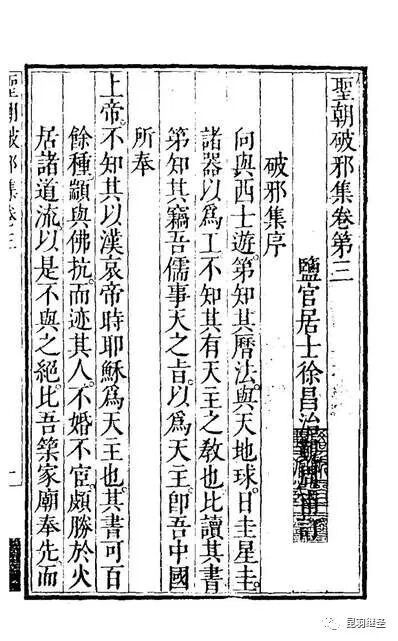 聖朝破邪集卷第三
鹽官居士徐昌治
破邪集序
向與西士遊。第知其曆法。與天地球。日圭星圭。
諸器以爲工。不知其有天主之敎也。比讀其書
第知其竊吾儒事天之旨。以爲天主。卽吾中國
所奉
上帝。不知其以漢哀帝時耶穌爲天主也。其書可百
餘種。顓與佛抗。而迹其人。不婚不宦。頗勝於火
居諸道流。以是不與之絕。比吾築家廟奉先。而
聖朝破邪集卷三
一
昆羽继圣